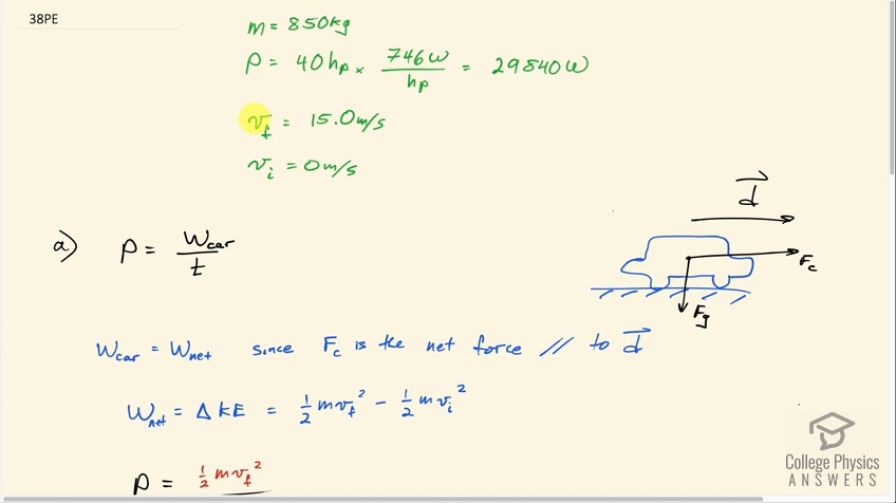 38PE
m = 850kg
P = 40hp × 746W / hp = 29840W
vf = 15.0m/s
vi = 0m/s
d
a) P = Wcar / t
Fc
Fg
Wcar = Wnet since Fc is the net force // to d
Wnet = ΔKE = 1/2 mvf² - 1/2 mvi²
P = 1/2 mvf²
College Physics
ANSWERS